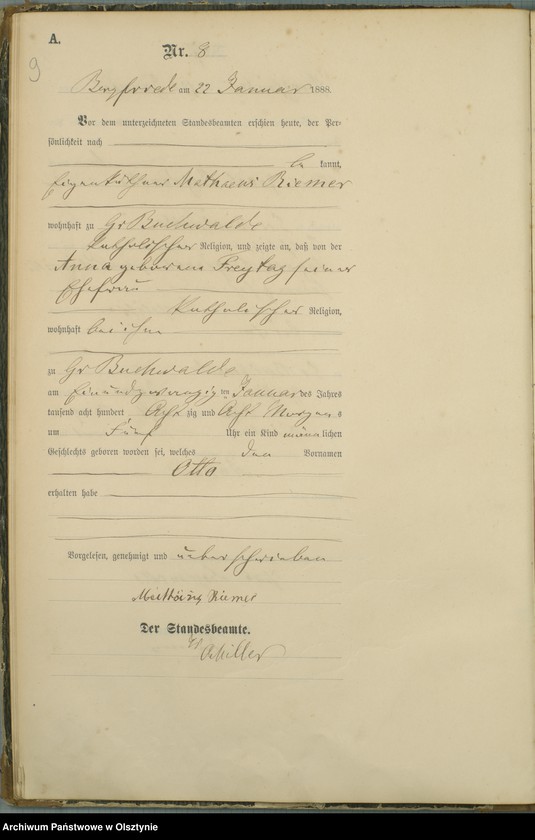 A.
9
Nr. 8
Bergfriede am 22 Januar 1888.
Vor dem unterzeichneten Standesbeamten erschien heute, der Per-
sönlichkeit nach
be kannt,
Eigenkäthner Mathaeus Riemer
wohnhaft zu Gr Buchwalde
katholischer Religion, und zeigte an, daß von der
Anna geborene Freytag seiner
Ehefrau
katholischer Religion,
wohnhaft bei ihm
zu Gr Buchwalde
am einundzwanzig ten Januar des Jahres
tausend acht hundert Acht zig und Acht Morgens
um Fünf Uhr ein Kind männlichen
Geschlechts geboren worden sei, welches den Vornamen
Otto
erhalten habe
Vorgelesen, genehmigt und unterschrieben
Mathäus Riemer
Der Standesbeamte.
Archiwum Państwowe w Olsztynie